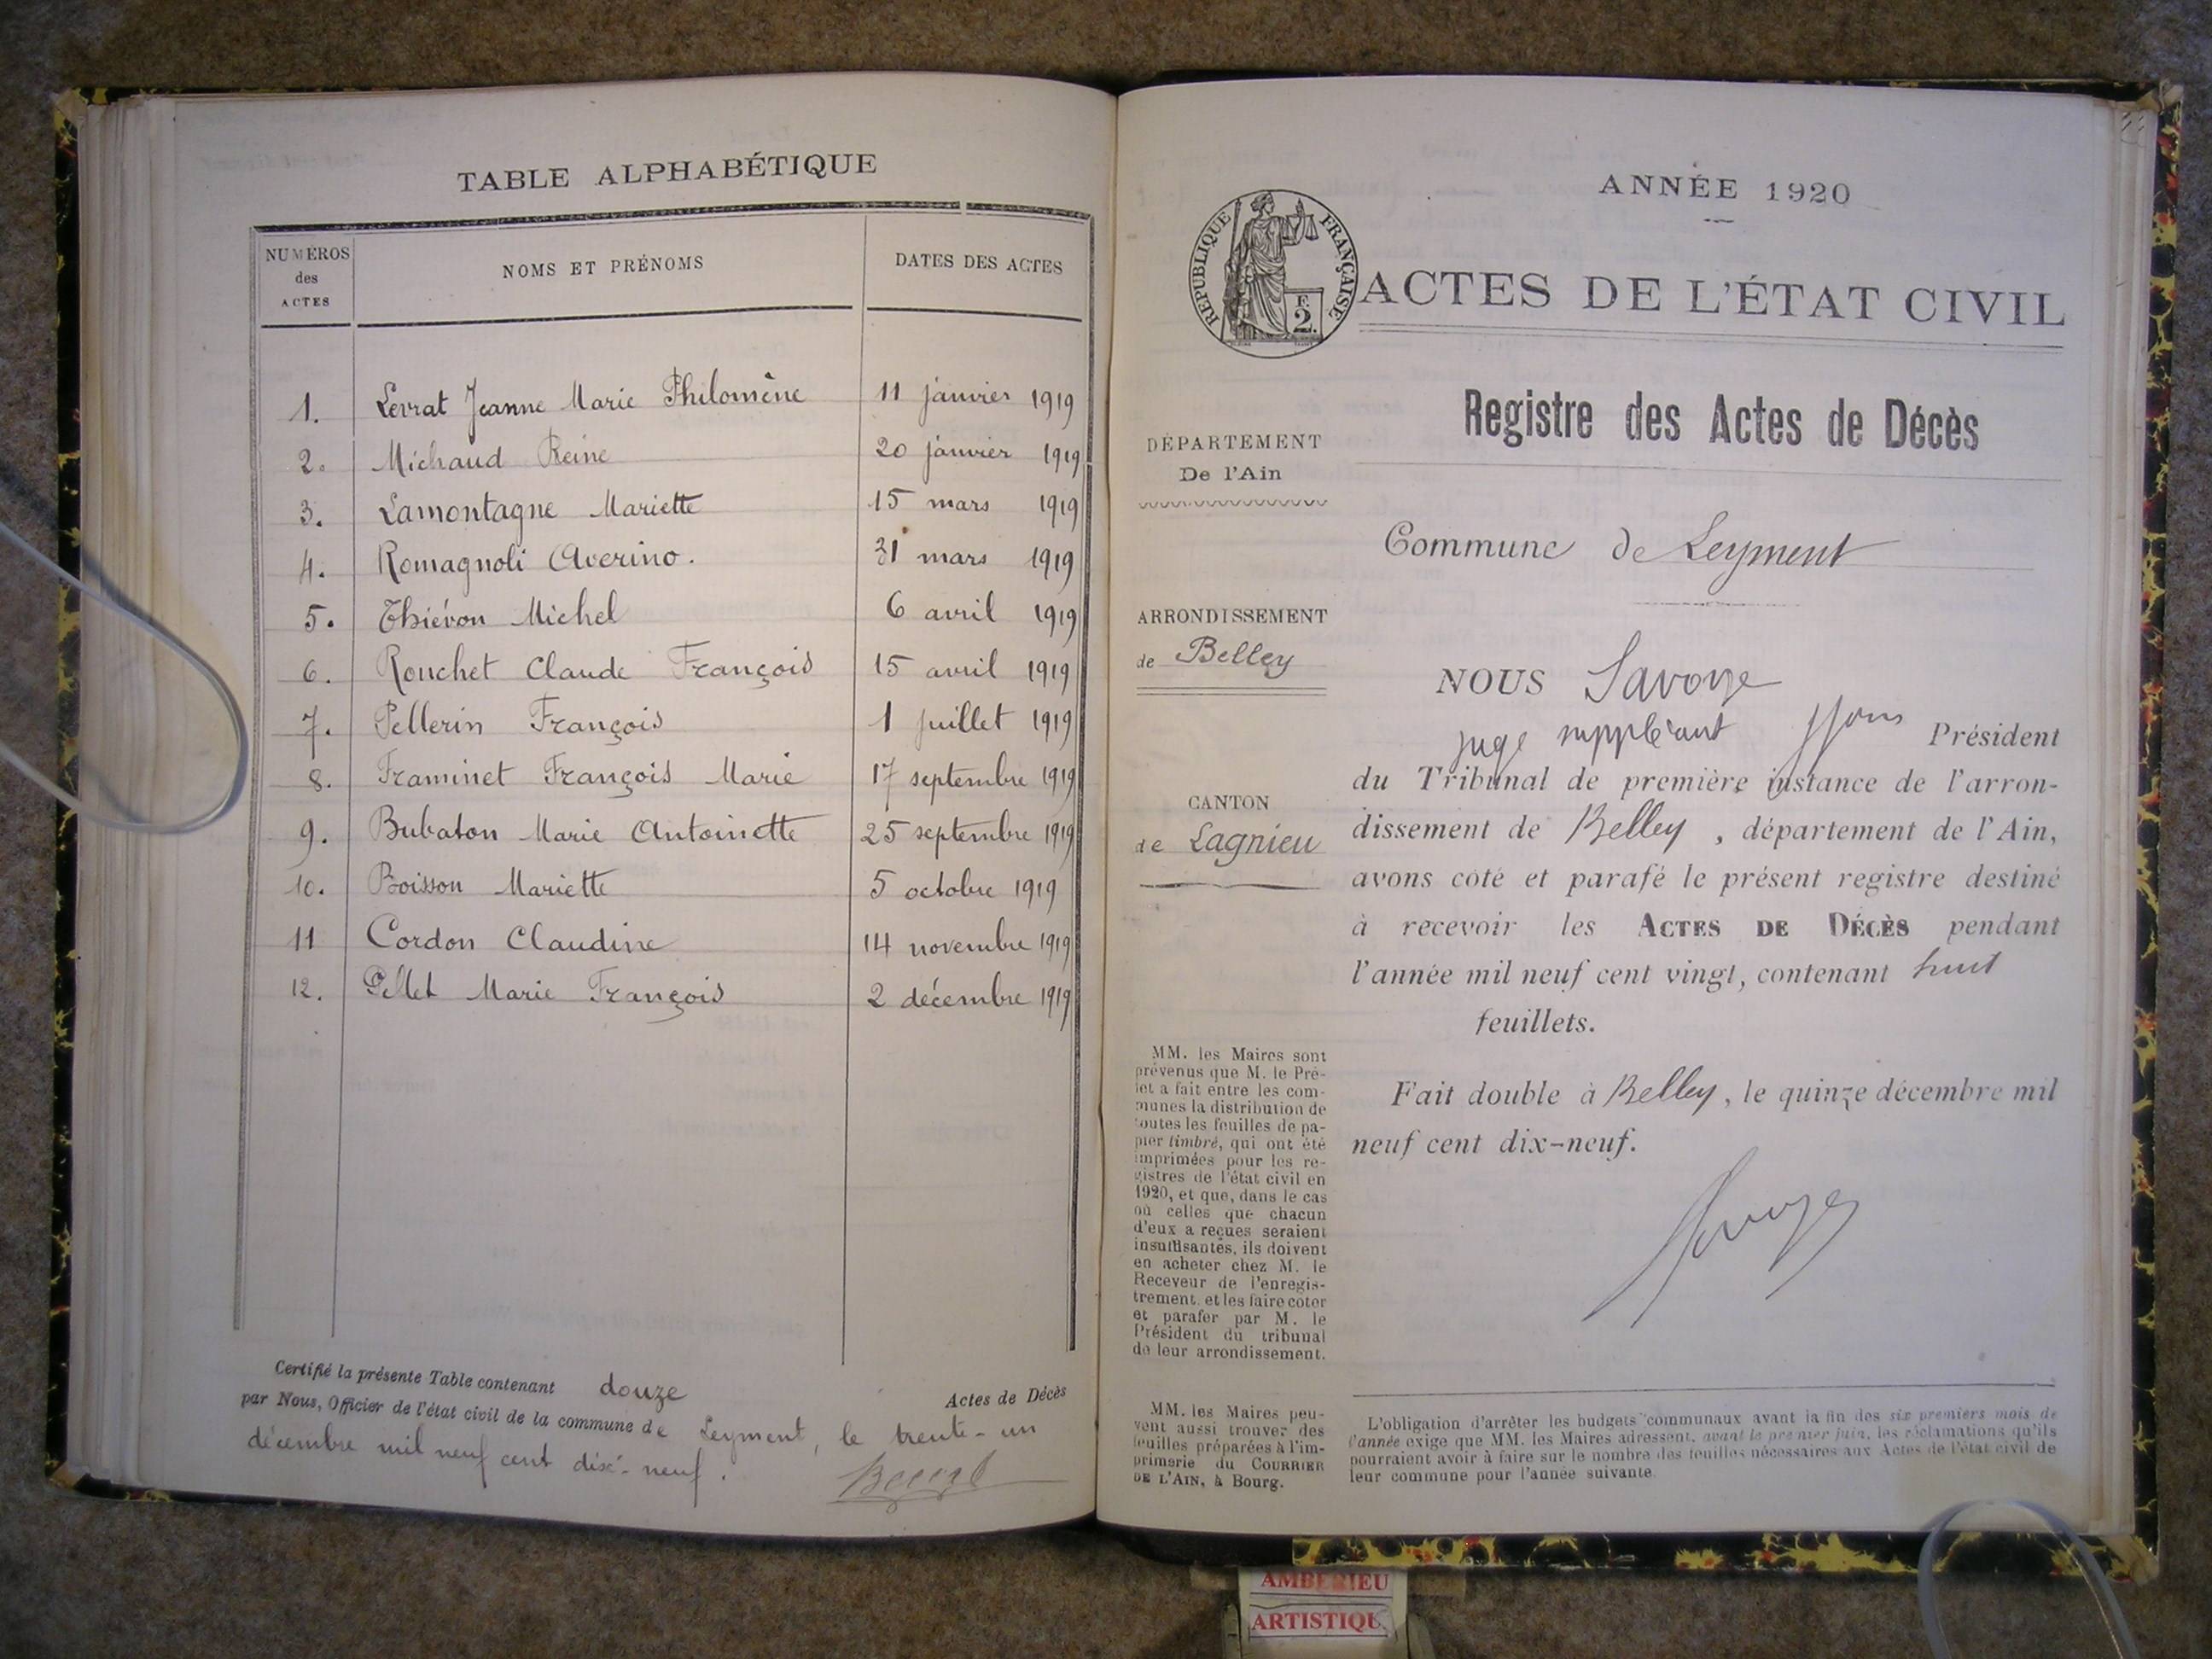 TABLE ALPHABÉTIQUE
NUMÉROS
des
ACTES
NOMS ET PRÉNOMS
DATES DES ACTES
1. Levrat Jeanne Marie Philomène 11 janvier 1919
2. Michaud Reine 20 janvier 1919
3. Lamontagne Mariette 15 mars 1919
4. Romagnoli Averino. 31 mars 1919
5. Thiévon Michel 6 avril 1919
6. Rouchet Claude François 15 avril 1919
7. Pellerin François 1 juillet 1919
8. Framinet François Marie 17 septembre 1919
9. Bubaton Marie Antoinette 25 septembre 1919
10. Boisson Mariette 5 octobre 1919
11 Cordon Claudine 14 novembre 1919
12. Pellet Marie François 2 décembre 1919
Certifié la présente Table contenant douze Actes de Décès
par Nous, Officier de l'état civil de la commune de Leyment, le trente-un
décembre mil neuf cent dix-neuf.
ANNÉE 1920
RÉPUBLIQUE FRANÇAISE
F.
2.
ACTES DE L'ÉTAT CIVIL
Registre des Actes de Décès
DÉPARTEMENT
De l'Ain
Commune de Leyment
ARRONDISSEMENT
de Belley
CANTON
de Lagnieu
NOUS Savoye
juge suppléant Président
du Tribunal de première instance de l'arron-
dissement de Belley, département de l'Ain,
avons coté et parafé le présent registre destiné
à recevoir les ACTES DE DÉCÈS pendant
l'année mil neuf cent vingt, contenant huit
feuillets.
Fait double à Belley, le quinze décembre mil
neuf cent dix-neuf.
MM. les Maires sont
prévenus que M. le Pré-
fet a fait entre les com-
munes la distribution de
toutes les feuilles de pa-
pier timbré, qui ont été
imprimées pour les re-
gistres de l'état civil en
1920, et que, dans le cas
où celles que chacun
d'eux a reçues seraient
insuffisantes, ils doivent
en acheter chez M. le
Receveur de l'enregis-
trement, et les faire coter
et parafer par M. le
Président du tribunal
de leur arrondissement.
MM. les Maires peu-
vent aussi trouver des
feuilles préparées à l'im-
primerie du COURRIER
DE L'AIN, à Bourg.
L'obligation d'arrêter les budgets communaux avant la fin des six premiers mois de
l'année exige que MM. les Maires adressent, avant le premier juin, les réclamations qu'ils
pourraient avoir à faire sur le nombre des feuilles nécessaires aux Actes de l'état civil de
leur commune pour l'année suivante.
AMBERIEU
ARTISTIQU